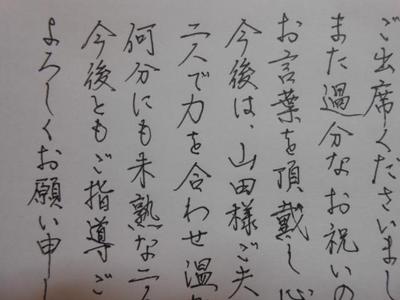 ご出席くださいまし
また過分なお祝いの
お言葉を頂戴し心
今後は、山田様ご夫
二人で力を合わせ温か
何分にも未熟な二人
今後ともご指導ご
よろしくお願い申し